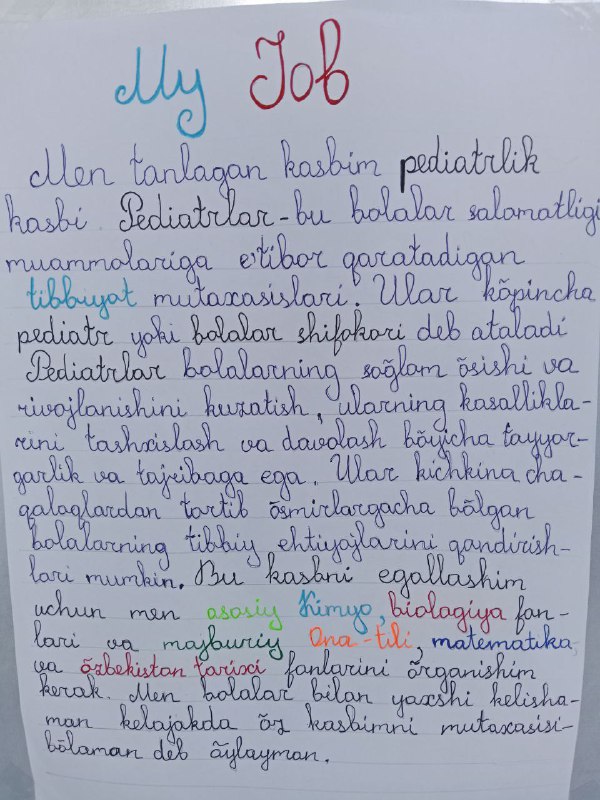 My Job
Men tanlagan kasbim pediatrlik
kasbi. Pediatrlar-bu bolalar salomatligi
muammolariga e'tibor qaratadigan
tibbiyat mutaxasislari. Ular kõpincha
pediatr yoki bolalar shifokori deb ataladi
Pediatrlar bolalarning sog̃lam õsishi va
rivojlanishini kuzatish, ularning kasallikla-
rini tashxislash va davolash bõyicha tayyor-
garlik va tajribaga ega. Ular kichkina cha-
qaloqlardan tortib õsmirlargacha bõlgan
bolalarning tibbiy ehtiyojlarini qondirish-
lari mumkin. Bu kasbni egallashim
uchun men asosiy Kimyo, biologiya fan-
lari va majburiy Ona-tili, matematika,
va õzbekistan tarixi fanlarini õrganishim
kerak. Men bolalar bilan yaxshi kelisha-
man kelajakda õz kasbimni mutaxasisi-
bõlaman deb õylayman.